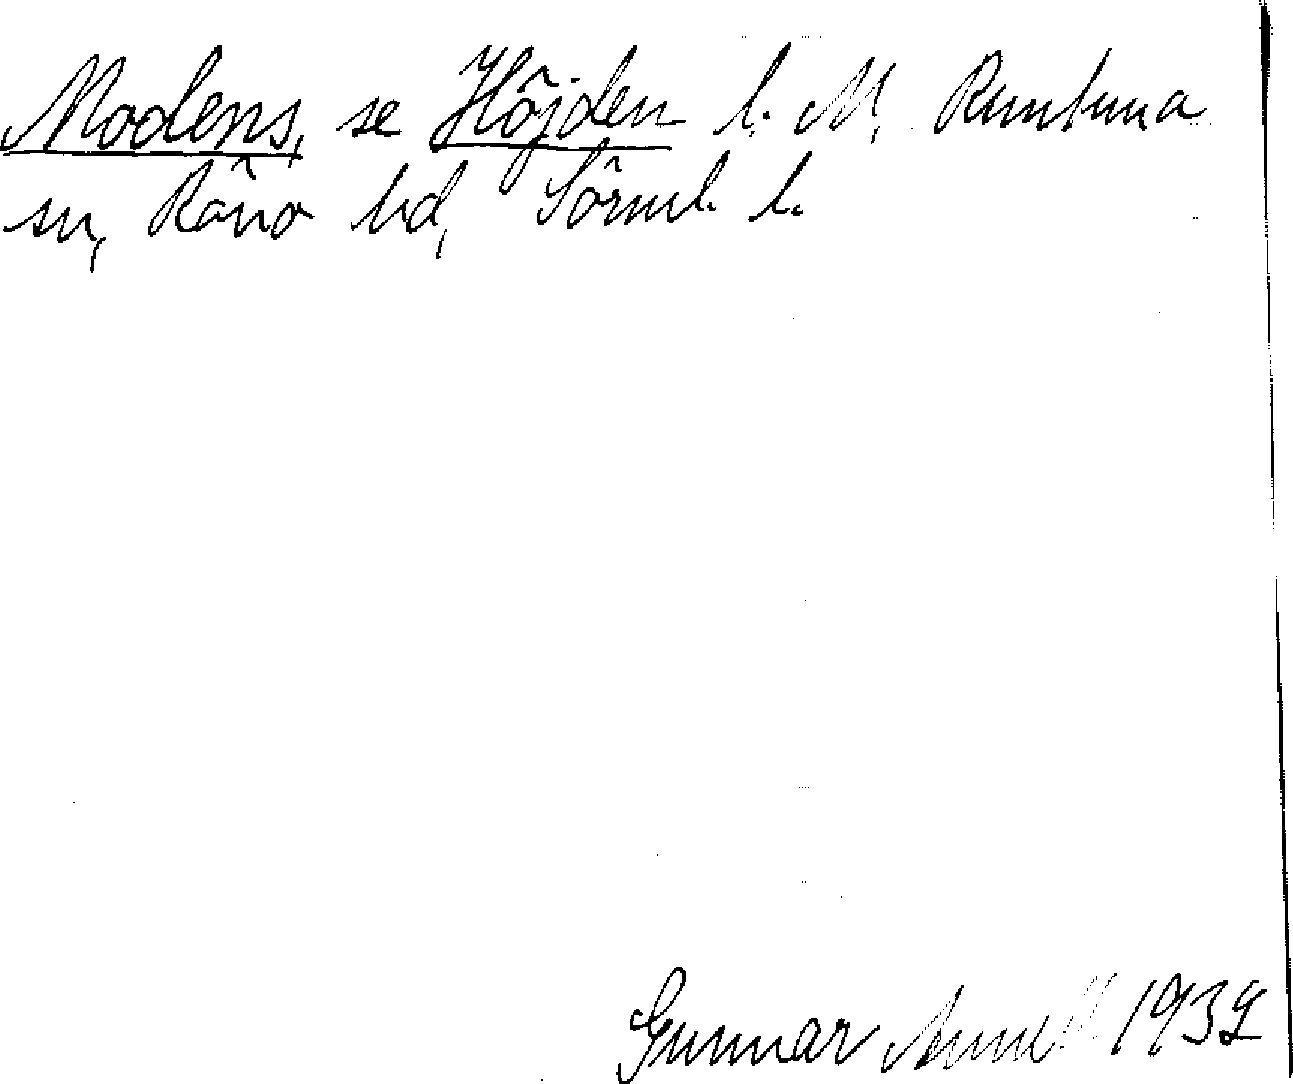 Modens, se Höjden l. M, Runtuna
sn, Rönö hd, Sörml. l.
Gunnar